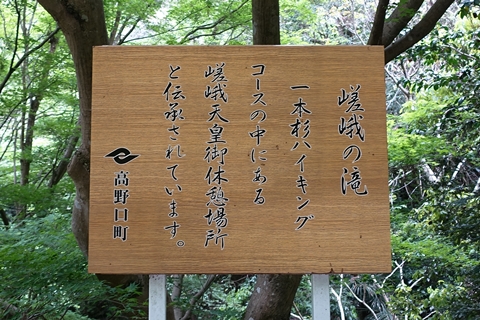 嵯峨の滝
一本杉ハイキング
コースの中にある
嵯峨天皇御休憩場所
と伝承されています。
高野口町